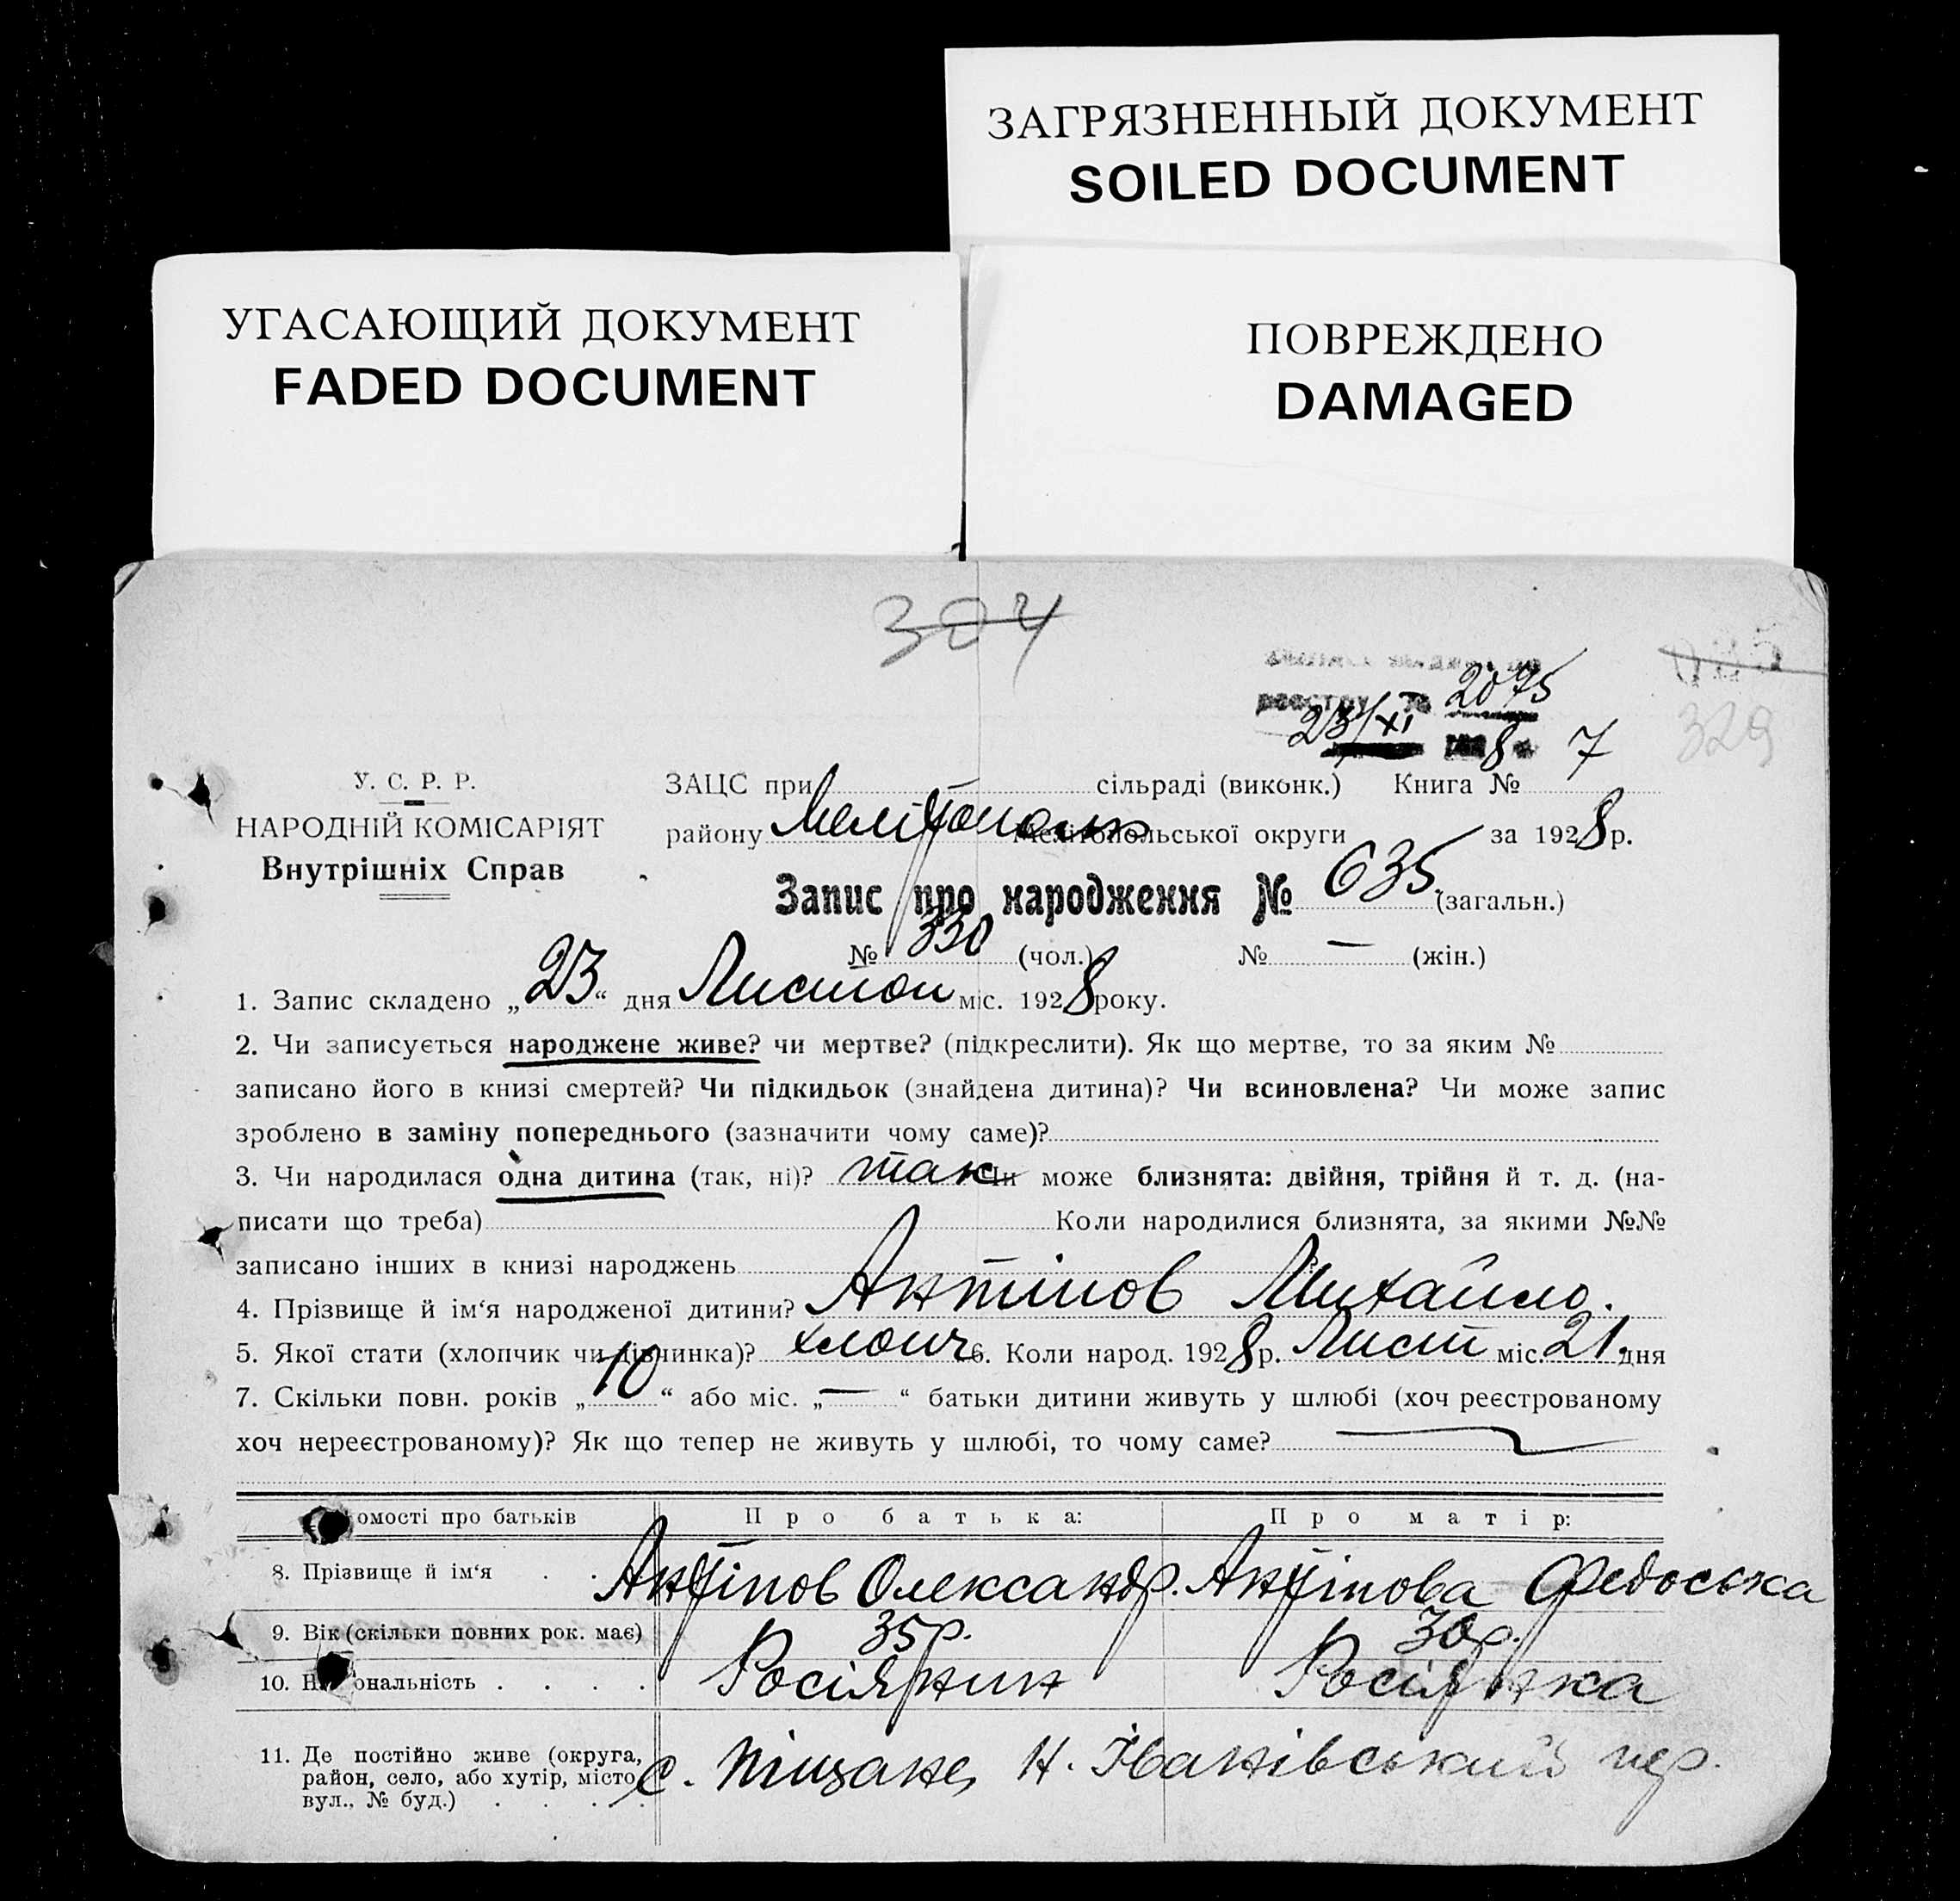 ЗАГРЯЗНЕННЫЙ ДОКУМЕНТ
SOILED DOCUMENT
УГАСАЮЩИЙ ДОКУМЕНТ
FADED DOCUMENT
ПОВРЕЖДЕНО
DAMAGED
304
реєстру № 2075
23/XI 1928 7
329
У. С. Р. Р.
НАРОДНІЙ КОМІСАРІЯТ
Внутрішніх Справ
ЗАЦС при сільраді (виконк.) Книга №
району Мелітопольск Мелітопольської округи за 1928 р.
Запис про народження № 635 (загальн.)
№ 330 (чол.) № — (жін.)
1. Запис складено „23“ дня Листоп міс. 1928 року.
2. Чи записується народжене живе? чи мертве? (підкреслити). Як що мертве, то за яким №
записано його в книзі смертей? Чи підкидьок (знайдена дитина)? Чи всиновлена? Чи може запис
зроблено в заміну попереднього (зазначити чому саме)?
3. Чи народилася одна дитина (так, ні)? так Чи може близнята: двійня, трійня й т. д. (на-
писати що треба) Коли народилися близнята, за якими №№
записано інших в книзі народжень
4. Прізвище й ім‘я народженої дитини? Антіпов Михайло.
5. Якої стати (хлопчик чи дівчинка)? хлопч 6. Коли народ. 1928 р. Лист міс. 21 дня
7. Скільки повн. років „10“ або міс. „—“ батьки дитини живуть у шлюбі (хоч реєстрованому
хоч нереєстрованому)? Як що тепер не живуть у шлюбі, то чому саме? —
омості про батьків Про батька: Про матір:
8. Прізвище й ім‘я . . Антіпов Олександр. Антіпова Федоська
9. Вік (скільки повних рок. має) 35 р. 30 р.
10. Н ональність . . . . Росіянин Росіянка
11. Де постійно живе (округа,
район, село, або хутір, місто,
вул., № буд.) . . . .
с. Піщане, Н. Іванівський пер.